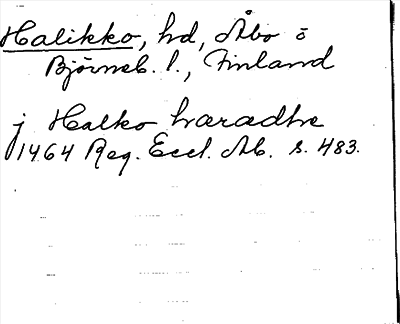 Halikko, hd, Åbo o
Björneb. l., Finland
j Halko hærædhe
1464 Reg. Eccl. Ab. s. 483.